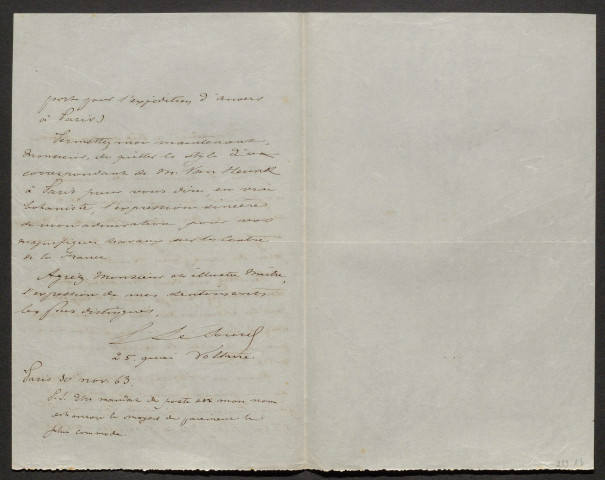 port pour l'expédition d'Anvers
à Paris)
Permettez moi maintenant,
Monsieur, de quitter le style d'un
correspondant de M. Van Heurck
à Paris pour vous dire, en vrai
botaniste, l'expression sincère
de mon admiration pour vos
magnifiques travaux sur le Centre
de la France
Agréez Monsieur et illustre Maître,
l'expression de mes sentiments
les plus distingués,
25, quai Voltaire
Paris 30 nov. 63.
P.S. Un mandat de poste à mon nom
est encore le moyen de paiement le
plus commode